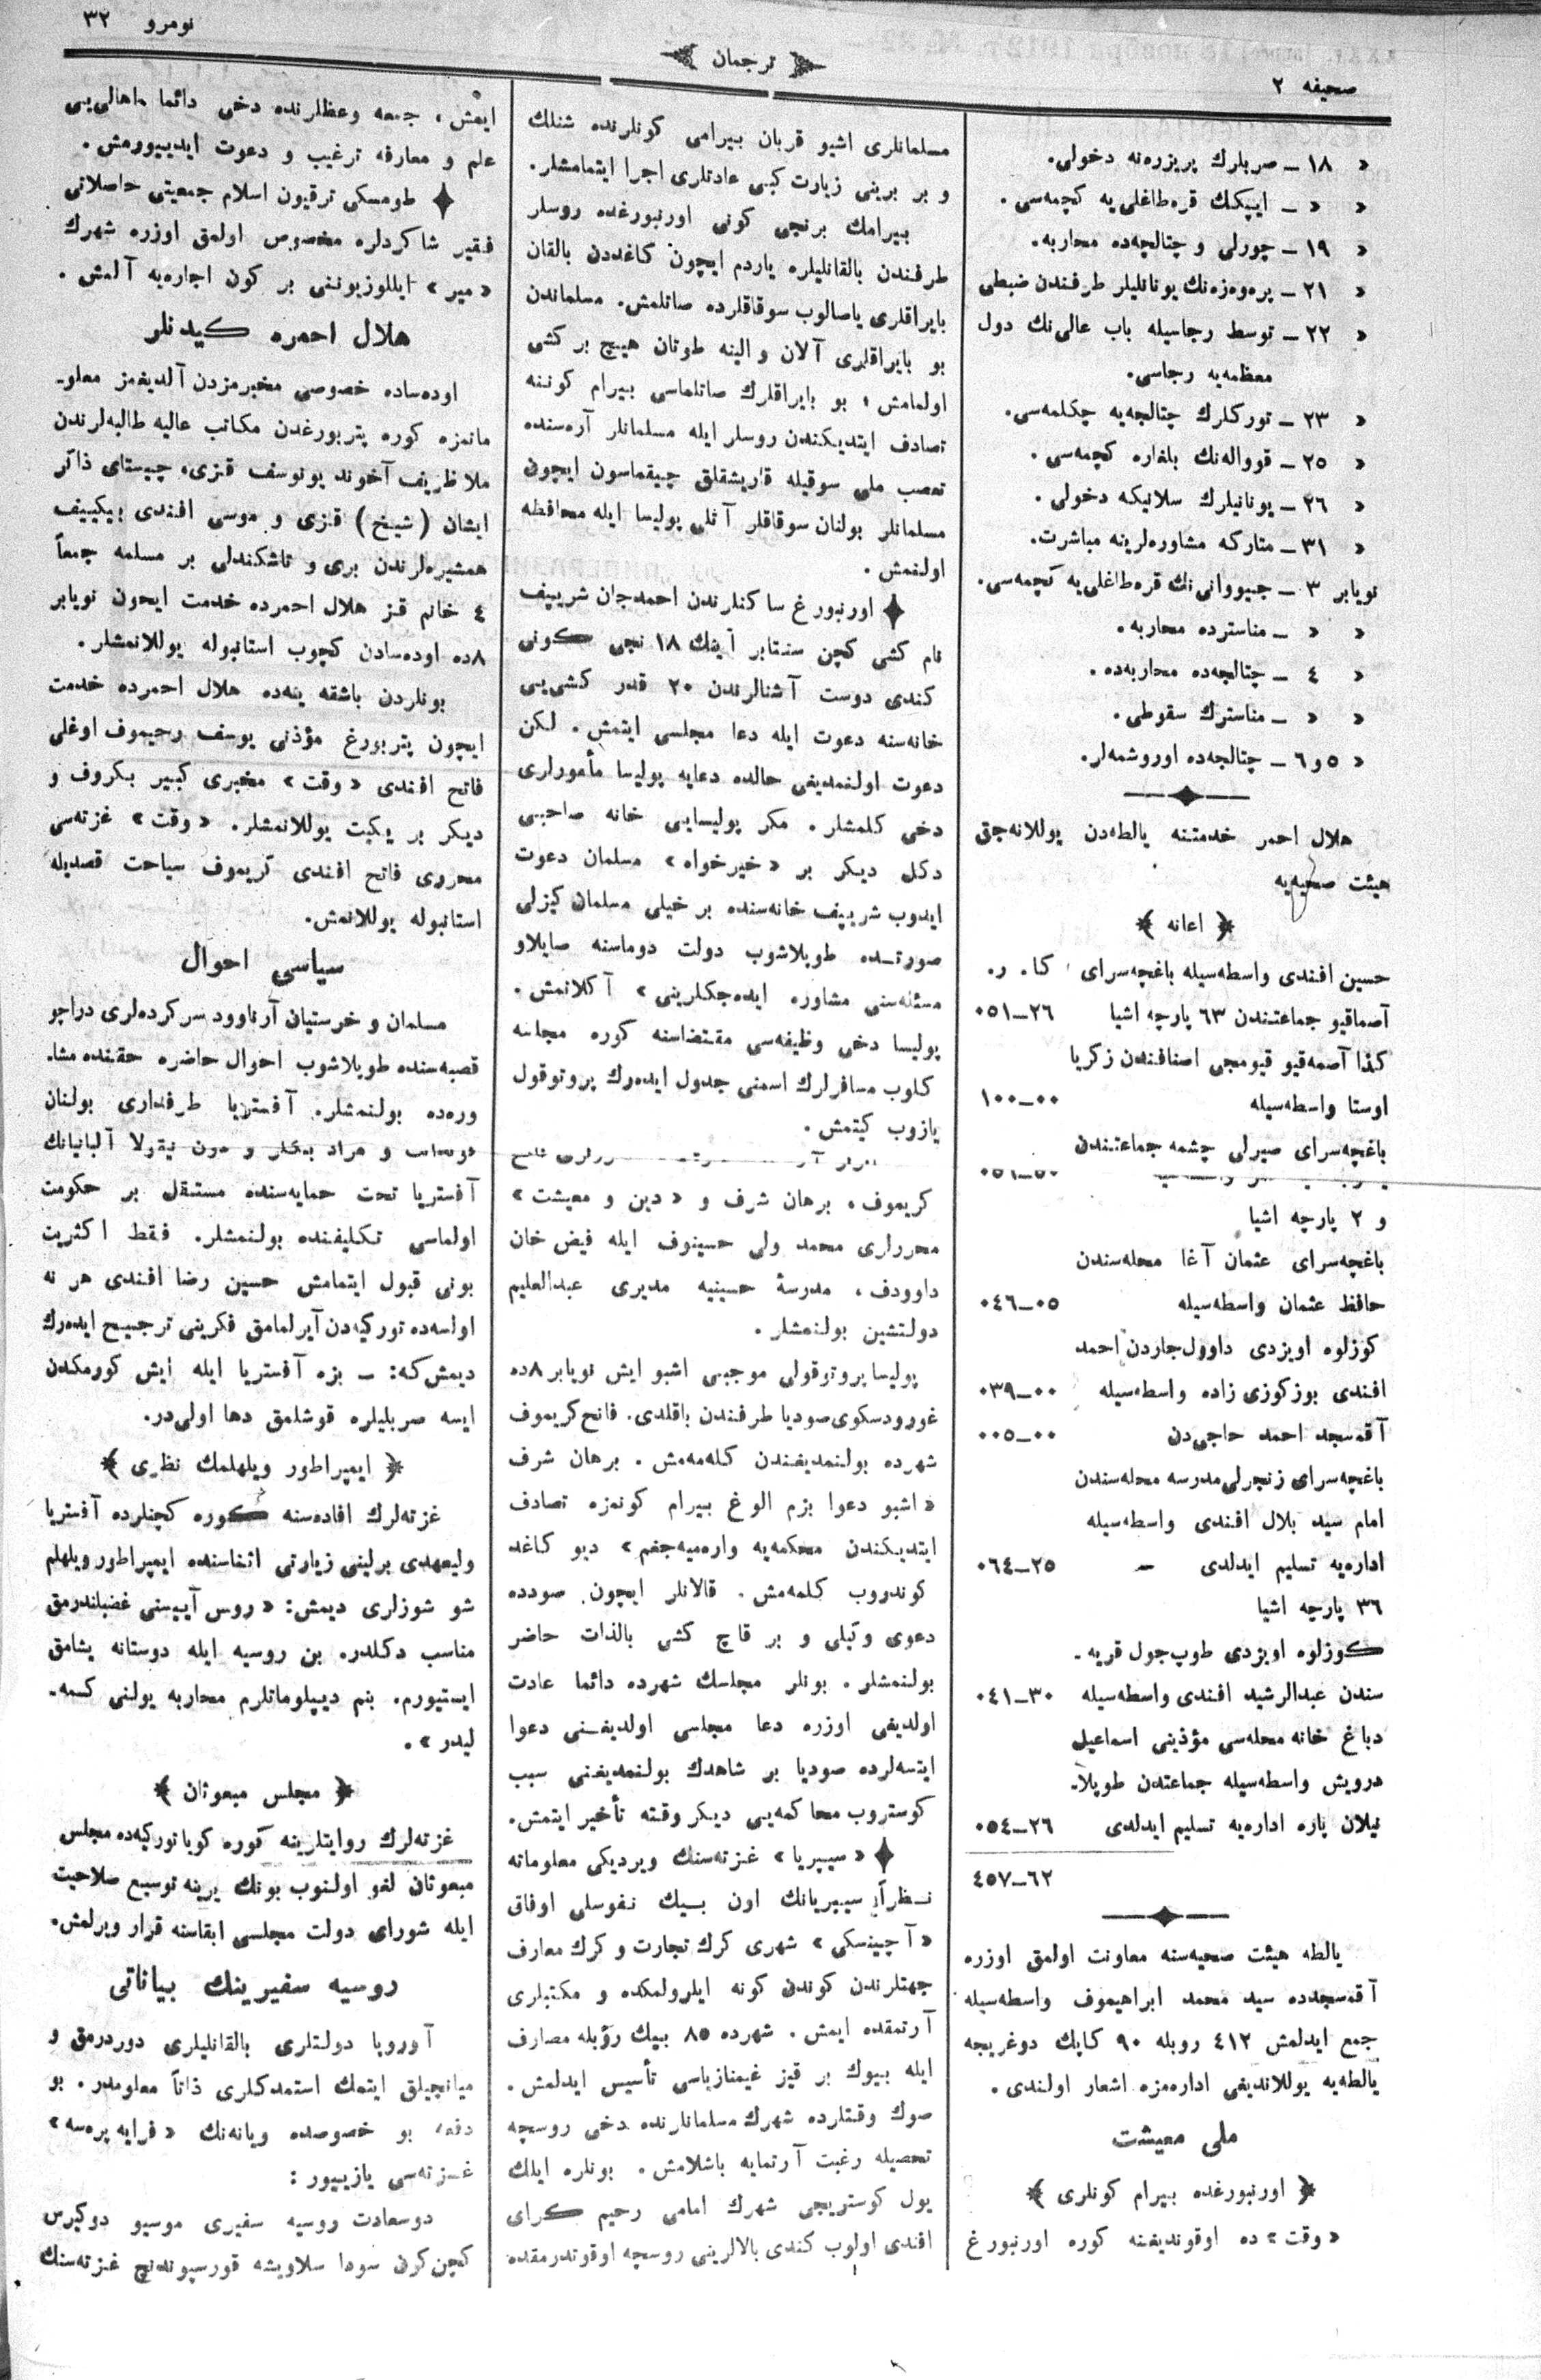 نومرو ٣٢
ترجمان
صحيفه ٢
« ١٨ ـ صربلرك پريزرەنه دخولى.
« « ـ ايپكك قره‌طاغلى‌يه كچمه‌سى.
« ١٩ ـ چورلى و چتالجه‌ده محاربه.
« ٢١ ـ پره‌وەزه‌نك يونانليلر طرفندن ضبطى
« ٢٢ ـ توسط رجاسيله باب عالى‌نك دول
معظمه‌يه رجاسى.
« ٢٣ ـ توركلرك چتالجه‌يه چكلمه‌سى.
« ٢٥ ـ قوواله‌نك بلغاره كچمه‌سى.
« ٢٦ ـ يونانيلرك سلانيكه دخولى.
« ٣١ ـ متاركه مشاوره‌لرينه مباشرت.
نويابر ٣ ـ جيووانى‌نك قره‌طاغلى‌يه كچمه‌سى.
« « ـ مناسترده محاربه.
« ٤ ـ چتالجه‌ده محاربه‌ده.
« « ـ مناسترك سقوطى.
« ٥و٦ ـ چتالجه‌ده اوروشمه‌لر.
هلال احمر خدمتنه يالطه‌دن يوللانه‌جق
هيئت صحيه‌يه
﴿ اعانه ﴾
حسين افندى واسطه‌سيله باغچه‌سراى كا. ر.
آصماقيو جماعتندن ٦٣ پارچه اشيا ٢٦ـ٠٥١
كذا آصمه‌قيو قيومجى اصنافندن زكريا
اوستا واسطه‌سيله ٠٠ـ١٠٠
باغچه‌سراى صيرلى چشمه جماعتندن
٥٠ـ٠٥١
و ٢ پارچه اشيا
باغچه‌سراى عثمان آغا محله‌سندن
حافظ عثمان واسطه‌سيله ٠٥ـ٠٤٦
كوزلوه اويزدى داوول‌جاردن احمد
افندى بوزكوزى زاده واسطه‌سيله ٠٠ـ٠٣٩
آقمسجد احمد حاجى‌دن ٠٠ـ٠٠٥
باغچه‌سراى زنجرلى‌مدرسه محله‌سندن
امام سيد بلال افندى واسطه‌سيله
اداره‌يه تسليم ايدلدى ـ ٢٥ـ٠٦٤
٣٦ پارچه اشيا
كوزلوه اويزدى طوپ‌جول قريه‌ـ
سندن عبدالرشيد افندى واسطه‌سيله ٣٠ـ٠٤١
دباغ خانه محله‌سى مؤذينى اسماعيل
درويش واسطه‌سيله جماعتدن طوپلاـ
نيلان پاره اداره‌يه تسليم ايدلدى ٢٦ـ٠٥٤
٦٢ـ٤٥٧
يالطه هيئت صحيه‌سنه معاونت اولمق اوزره
آقمسجدده سيد محمد ابراهيموف واسطه‌سيله
جمع ايدلمش ٤١٢ روبله ٩٠ كاپك دوغريجه
يالطه‌يه يوللانديغى اداره‌مزه اشعار اولندى.
ملى معيشت
﴿ اورنبورغده بيرام كونلرى ﴾
« وقت » ده اوقونديغنه كوره اورنبورغ
مسلمانلرى اشبو قربان بيرامى كونلرنده شنلك
و بر برينى زيارت كبى عادتلرى اجرا ايتمامشلر.
بيرامك برنجى كونى اورنبورغده روسلر
طرفندن بالقانليلره ياردم ايچون كاغددن بالقان
بايراقلرى ياصالوب سوقاقلرده صاتلمش. مسلماندن
بو بايراقلرى آلان و الينه طوتان هيچ بر كشى
اولمامش؛ بو بايراقلرك صاتلماسى بيرام كوننه
تصادف ايتديكندن روسلر ايله مسلمانلر آره‌سنده
تعصب ملى سوقيله قاريشقلق چيقماسون ايچون
مسلمانلر بولنان سوقاقلر آتلى پوليسا ايله محافظه
اولنمش.
اورنبورغ ساكنلرندن احمدجان شريپف
نام كشى كچن سنتابر آينك ١٨ نجى كونى
كندى دوست آشنالرندن ٢٠ قدر كشى‌يى
خانه‌سنه دعوت ايله دعا مجلسى ايتمش. لكن
دعوت اولنمديغى حالده دعايه پوليسا مأمورلرى
دخى كلمشلر. مكر پوليسايى خانه صاحبى
دكل ديكر بر « خيرخواه » مسلمان دعوت
ايدوب شريپف خانه‌سنده بر خيلى مسلمان كيزلى
صورتده طوپلاشوب دولت دوماسنه صايلاو
مسئله‌سنى مشاوره ايده‌جكلرينى » آكلاتمش.
پوليسا دخى وظيفه‌سى مقتضاسنه كوره مجلسه
كلوب مسافرلرك اسمنى جدول ايده‌رك پروتوقول
يازوب كيتمش.
كريموف، برهان شرف و « دين و معيشت »
محررلرى محمد ولى حسينوف ايله فيض خان
داوودف، مدرسۀ حسينيه مديرى عبدالعليم
دولتشين بولنمشلر.
پوليسا پروتوقولى موجبى اشبو ايش نويابر ٨ده
غورودسكوى صوديا طرفندن باقلدى. فاتح كريموف
شهرده بولنمديغندن كله‌مه‌مش. برهان شرف
« اشبو دعوا بزم الوغ بيرام كونمزه تصادف
ايتديكندن محكمه‌يه وارەميه‌جغم » ديو كاغد
كوندروب كلمه‌مش. قالانلر ايچون صودده
دعوى وكيلى و بر قاچ كشى بالذات حاضر
بولنمشلر. بونلر مجلسك شهرده دائما عادت
اولديغى اوزره دعا مجلسى اولديغنى دعوا
ايتسه‌لرده صوديا بر شاهدك بولنمديغنى سبب
كوستروب محاكمه‌يى ديكر وقته تأخير ايتمش.
« سيبريا » غزته‌سنك ويرديكى معلوماته
نظراً سيبريانك اون بيك نفوسلى اوفاق
« آچينسكى » شهرى كرك تجارت و كرك معارف
جهتلرندن كوندن كونه ايلرولمكده و مكتبلرى
آرتمقده ايمش. شهرده ٨٥ بيك رؤبله مصارف
ايله بيوك بر قيز غيمنازياسى تأسيس ايدلمش.
صوك وقتلرده شهرك مسلمانلرنده دخى روسچه
تحصيله رغبت آرتمايه باشلامش. بونلره ايلك
يول كوستريجى شهرك امامى رحيم كراى
افندى اولوب كندى بالالرينى روسچه اوقوتدرمقده
ايمش، جمعه وعظلرنده دخى دائما اهالى‌يى
علم و معارفه ترغيب و دعوت ايدييورمش.
طومسكى ترقيون اسلام جمعيتى حاصلاتى
فقير شاكردلره مخصوص اولمق اوزره شهرك
« مير » ايللوزيوننى بر كون اجاره‌يه آلمش.
هلال احمره كيدنلر
اوده‌ساده خصوصى مخبرمزدن آلديغمز معلوـ
ماتمزه كوره پتربورغدن مكاتب عاليه طالبه‌لرندن
ملا ظريف آخوند يونوسف قزى، چيستاى ذاكر
ايشان (شيخ) قزى و موسى افندى بيكييف
همشيره‌لرندن برى و تاشكندلى بر مسلمه جمعاً
٤ خانم قز هلال احمرده خدمت ايچون نويابر
٨ده اوده‌سادن كچوب استانبوله يوللانمشلر.
بونلردن باشقه ينه‌ده هلال احمرده خدمت
ايچون پتربورغ مؤذنى يوسف رحيموف اوغلى
فاتح افندى « وقت » مخبرى كبير بكروف و
ديكر بر يكيت يوللانمشلر. « وقت » غزته‌سى
محررى فاتح افندى كريموف سياحت قصديله
استانبوله يوللانمش.
سياسى احوال
مسلمان و خرستيان آرناوود سركرده‌لرى دراچو
قصبه‌سنده طوپلاشوب احوال حاضره حقنده مشاـ
وره‌ده بولنمشلر. آفستريا طرفدارى بولنان
و مراد بكلر و دون نيقولا آلبانيانك
آفستريا تحت حمايه‌سنده مستقل بر حكومت
اولماسى تكليفنده بولنمشلر. فقط اكثريت
بونى قبول ايتمامش حسين رضا افندى هر نه
اولسه‌ده توركيه‌دن آيرلمامق فكرينى ترجيح ايده‌رك
ديمش‌كه: ـ بزه آفستريا ايله ايش كورمكدن
ايسه صربليلره قوشلمق دها اولى‌در.
﴿ ايمپراطور ويلهلمك نظرى ﴾
غزته‌لرك افاده‌سنه كوره كچنلرده آفستريا
وليعهدى برلينى زيارتى اثناسنده ايمپراطور ويلهلم
شو شوزلرى ديمش: « روس آييسنى غضبلندرمق
مناسب دكلدر. بن روسيه ايله دوستانه يشامق
ايستيورم. بنم ديپلوماتلرم محاربه يولنى كسمه‌ـ
ليدر ».
﴿ مجلس مبعوثان ﴾
غزته‌لرك روايتلرينه كوره كويا توركيه‌ده مجلس
مبعوثان لغو اولنوب بونك يرينه توسيع صلاحيت
ايله شوراى دولت مجلسى ابقاسنه قرار ويرلمش.
روسيه سفيرينك بياناتى
آوروپا دولتلرى بالقانليلرى دوردرمق و
ميانجيلق ايتمك استمدكلرى ذاتاً معلومدر. بو
دفعه بو خصوصده ويانه‌نك « فرايه پره‌سه »
غزته‌سى يازييور:
دوسعادت روسيه سفيرى موسيو دوكيرس
كچن كون سودا سلاويشه قورسپوندنچ غزته‌سنك